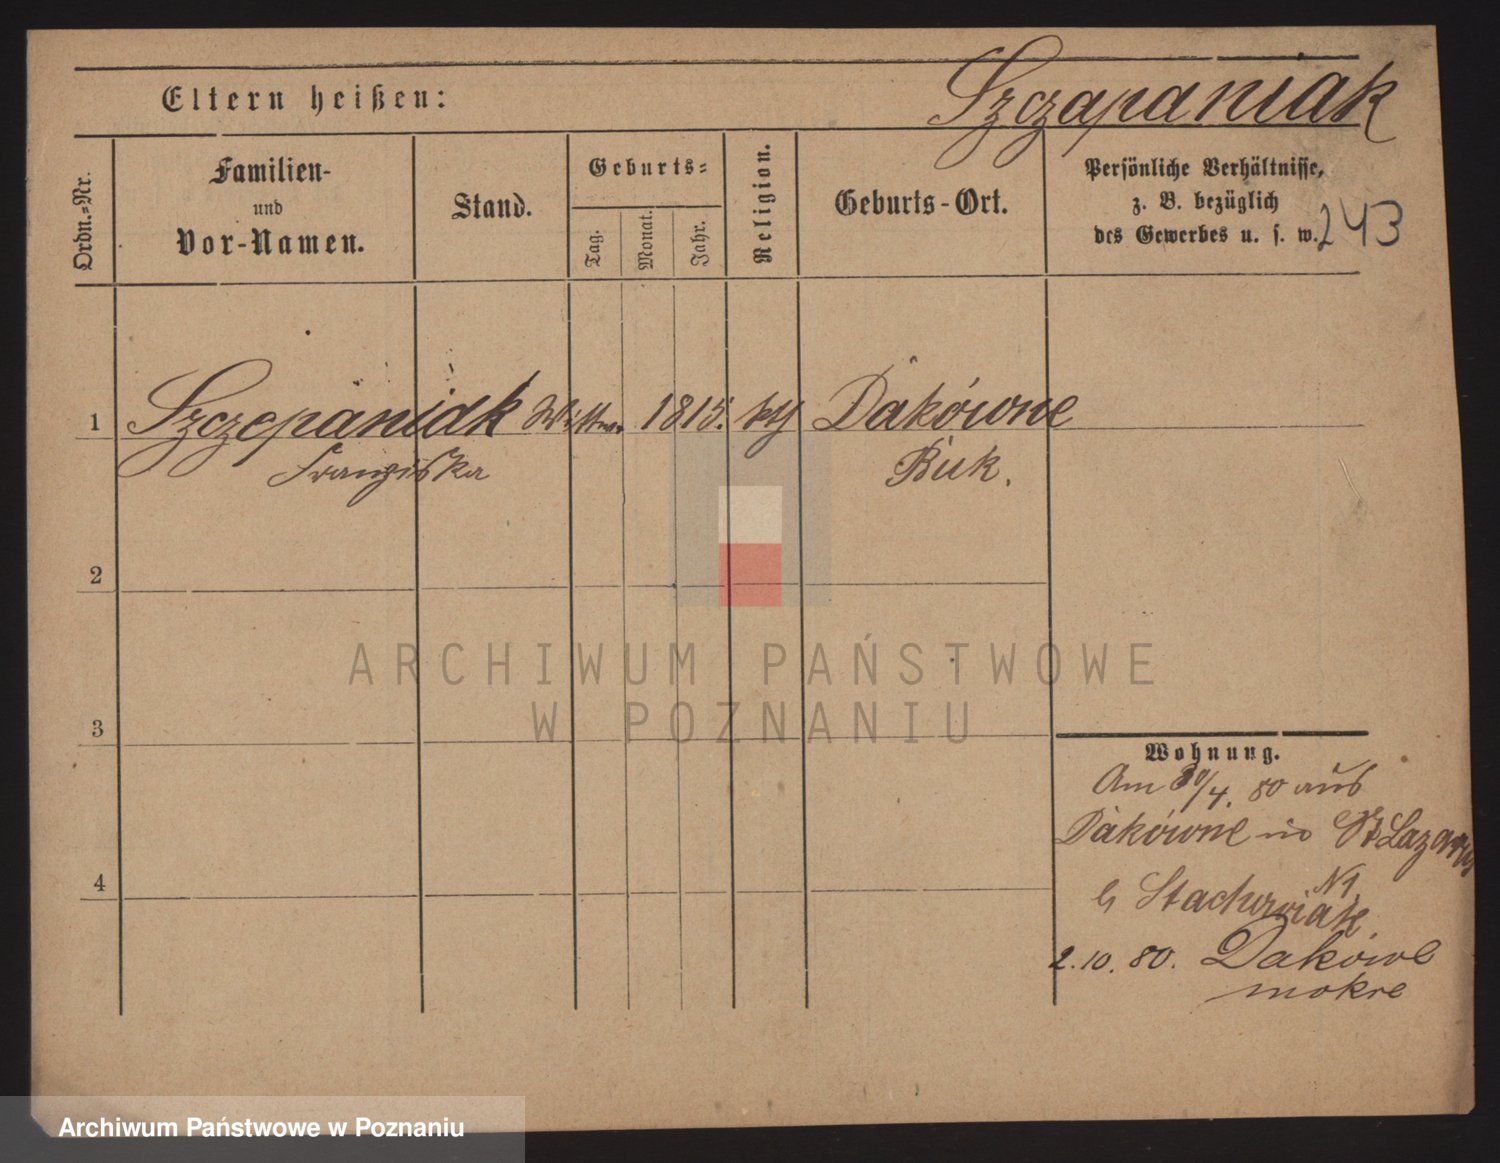 Eltern heißen:
Szczapaniak
Ordn.=Nr.
Familien-
und
Vor-Namen.
Stand.
Geburts=
Tag.
Monat.
Jahr.
Religion.
Geburts-Ort.
Persönliche Verhältnisse,
z. B. bezüglich
des Gewerbes u. s. w.
243
1 Szczepaniak Wittwe 1815. kth Dakówne
Franziska Buk.
2
3
4
Wohnung.
Am 30/4. 80 aus
Dakówne in St Lazarus
N 1
b Stachowiak
2.10.80. Dakowe
mokre
ARCHIWUM PAŃSTWOWE
W POZNANIU
Archiwum Państwowe w Poznaniu